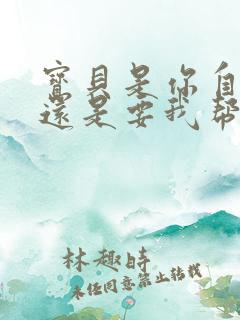 寶貝是你自
還是要我幫
林趣時
未經同意禁止轉載